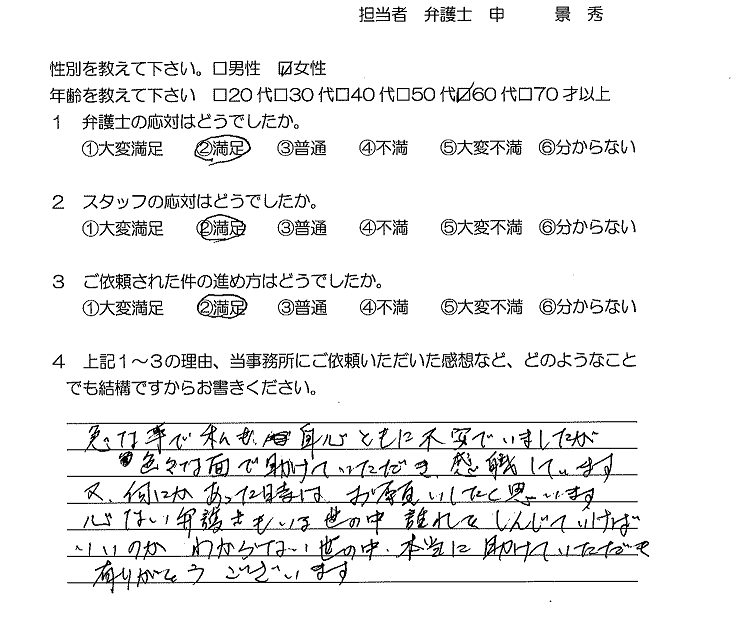 担当者 弁護士 申 景 秀
性別を教えて下さい。□男性 ☑女性
年齢を教えて下さい □20代□30代□40代□50代☑60代□70才以上
1 弁護士の応対はどうでしたか。
①大変満足 ②満足 ③普通 ④不満 ⑤大変不満 ⑥分からない
2 スタッフの応対はどうでしたか。
①大変満足 ②満足 ③普通 ④不満 ⑤大変不満 ⑥分からない
3 ご依頼された件の進め方はどうでしたか。
①大変満足 ②満足 ③普通 ④不満 ⑤大変不満 ⑥分からない
4 上記1～3の理由、当事務所にご依頼いただいた感想など、どのようなこと
でも結構ですからお書きください。
急な事で私も、身心ともに不安でいましたが
色々な面で助けていただき 感職しています
又、何にかあった時は お願いしたと思います
心ない弁護きもいる世の中 誰れを しんじていけば
いいのか わからない世の中、本当に助けていただき
有りがとう ございます